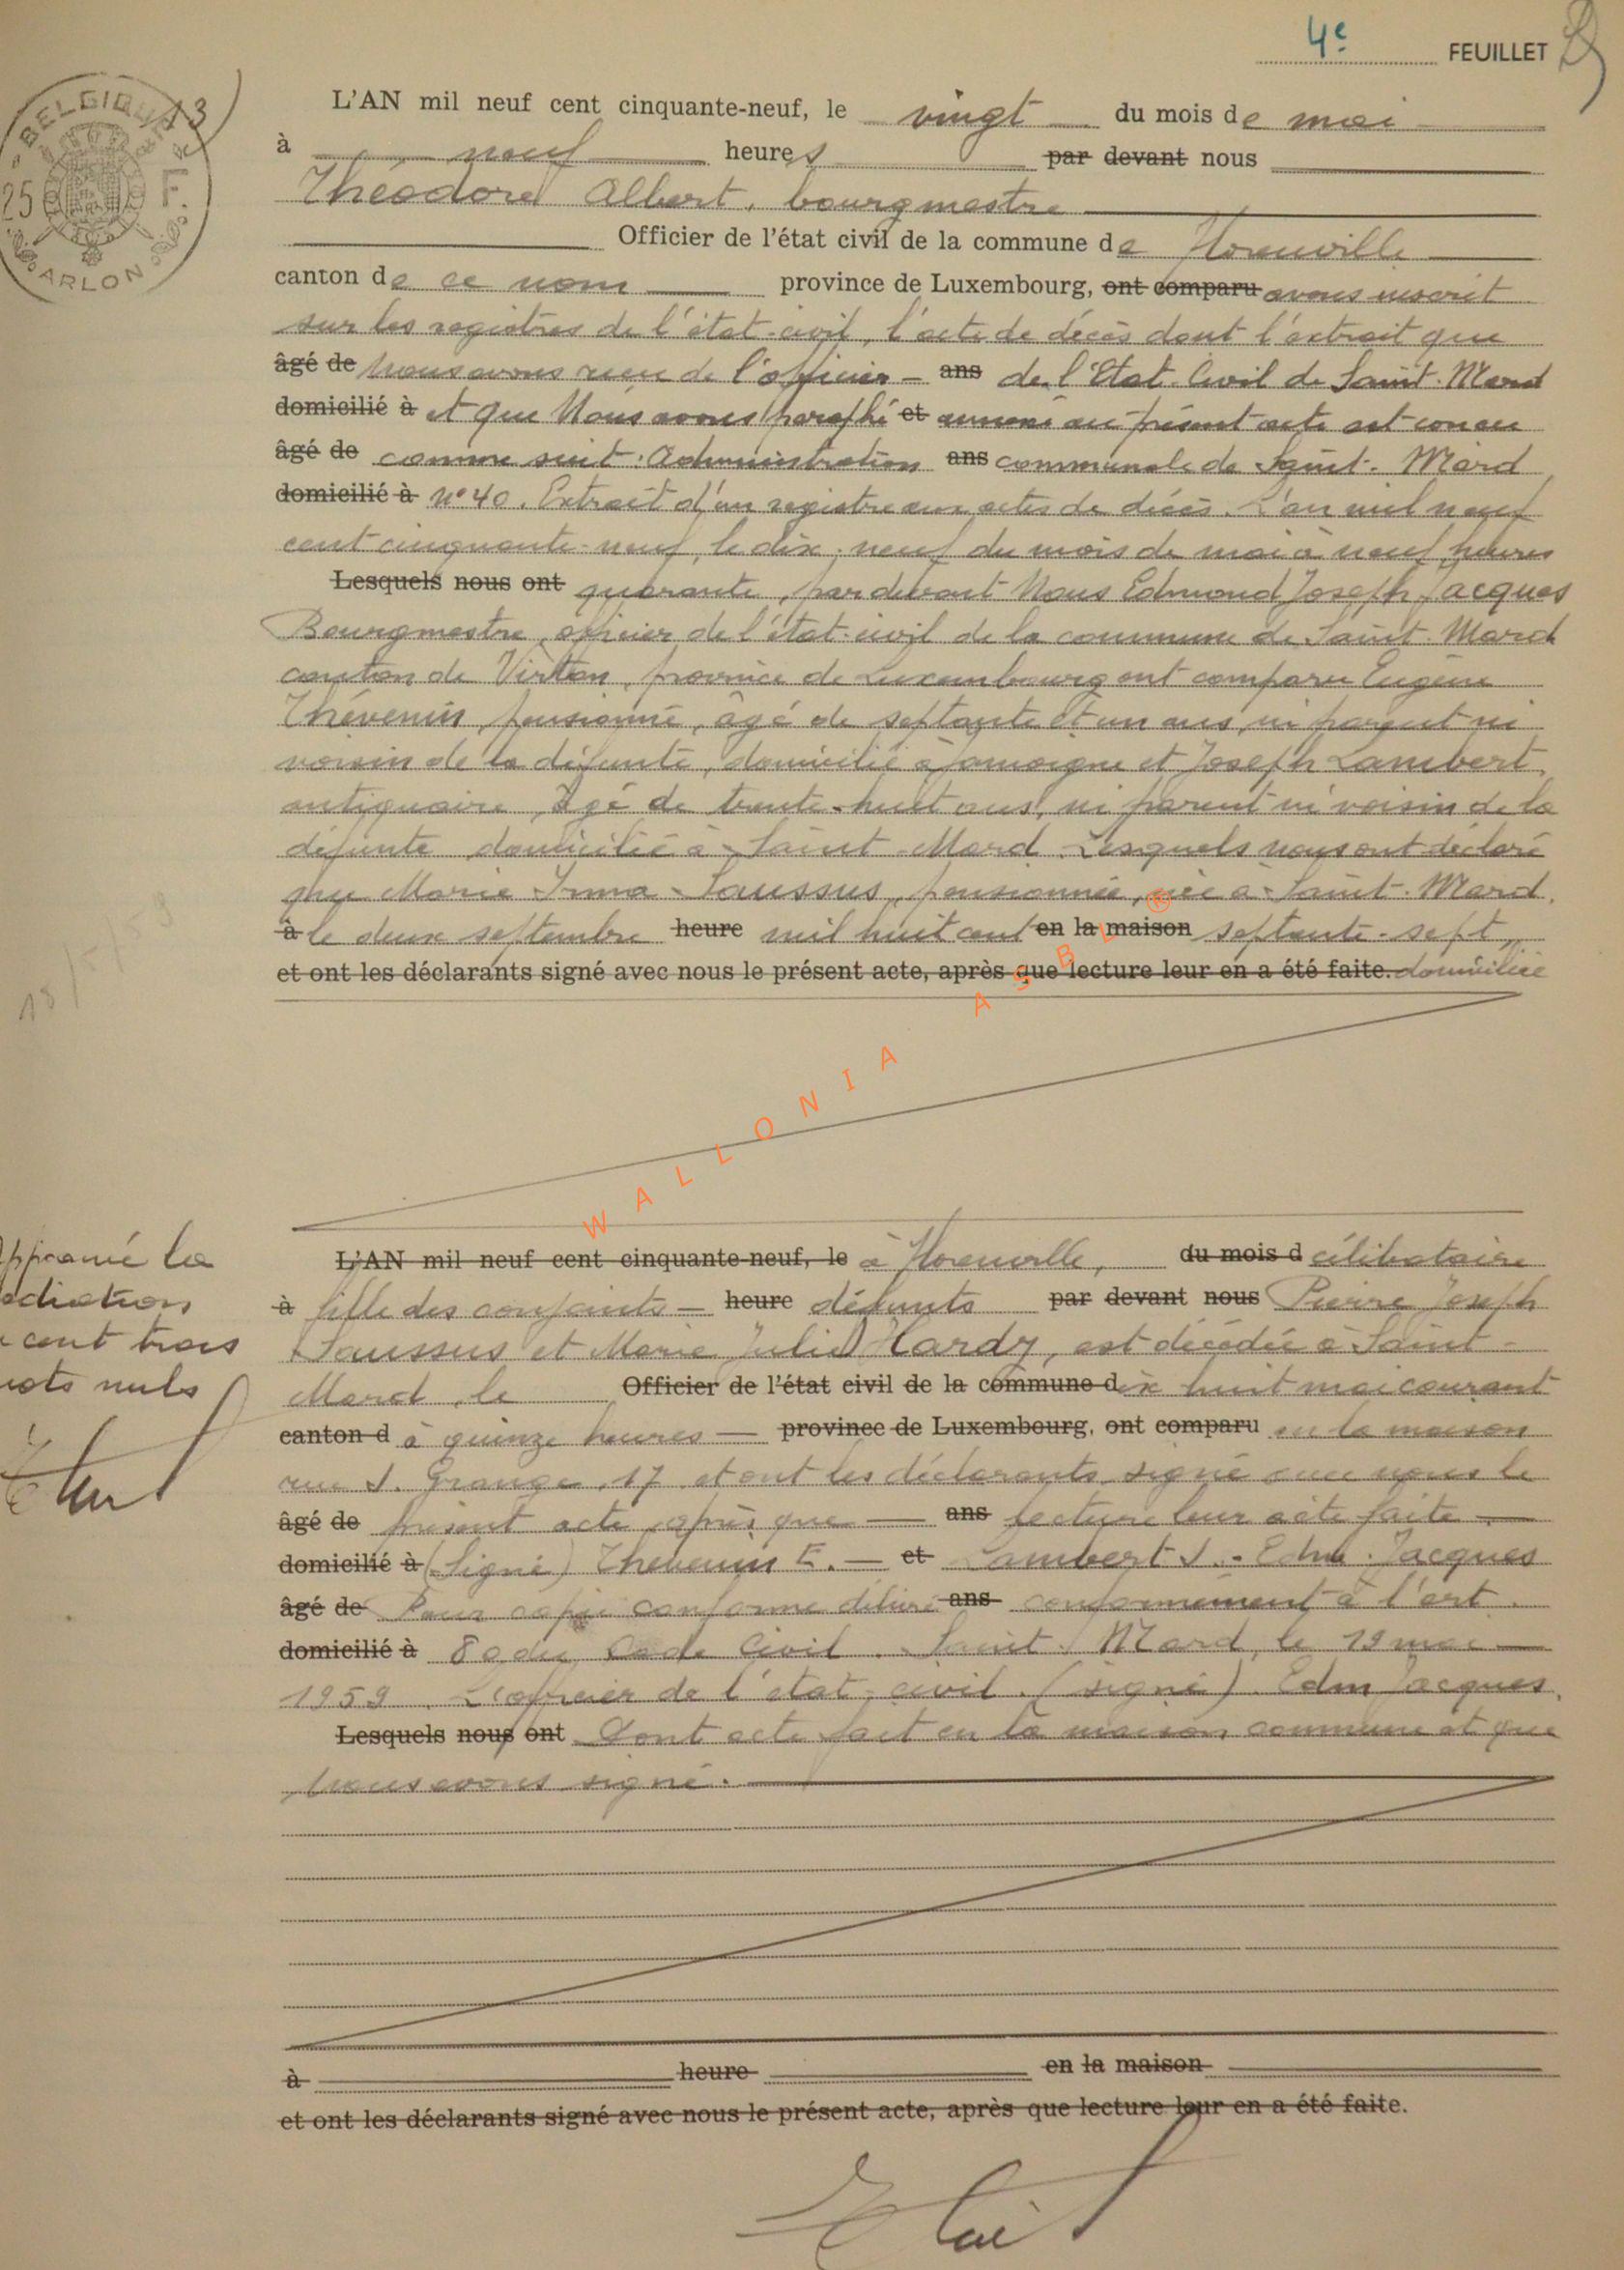 4e FEUILLET
BELGIQUE
25 F.
ARLON
13)
L'AN mil neuf cent cinquante-neuf, le vingt du mois de mai
à neuf heures par devant nous
Théodore Albert, bourgmestre
Officier de l'état civil de la commune de Florenville
canton de ce nom province de Luxembourg, ont comparu avons inscrit
sur les registres de l'état-civil, l'acte de décès dont l'extrait que
âgé de Nous avons reçu de l'officier - ans de l'Etat-Civil de Saint-Mard
domicilié à et que Nous avons paraphé et annexé au présent acte est conçu
âgé de comme suit : Administration ans communale de Saint-Mard
domicilié à n° 40. Extrait d'un registre aux actes de décès. L'an mil neuf
cent cinquante-neuf, le dix-neuf du mois de mai à neuf heures
Lesquels nous ont quarante, par devant Nous Edmond Joseph Jacques
Bourgmestre, officier de l'état-civil de la commune de Saint-Mard
canton de Virton, province de Luxembourg ont comparu Eugène
Thévenin, pensionné, âgé de septante et un ans, ni parent ni
voisin de la défunte, domicilié à Jamoigne et Joseph Lambert,
antiquaire, âgé de trente-huit ans, ni parent ni voisin de la
défunte domicilié à Saint-Mard. Lesquels nous ont déclaré
que Marie Irma Saussus, pensionnée, née à Saint-Mard,
à le deux septembre heure mil huit cent en la maison septante-sept,
et ont les déclarants signé avec nous le présent acte, après que lecture leur en a été faite. domiciliée
18/5/59
WALLONIA ASBL ®
Approuvé la
radiation
cent trois
mots nuls
L'AN mil neuf cent cinquante-neuf, le à Florenville, du mois d célibataire
à fille des conjoints - heure défunts par devant nous Pierre Joseph
Saussus et Marie Julie Hardy, est décédée à Saint-
Mard, le Officier de l'état civil de la commune dix huit mai courant
canton d à quinze heures - province de Luxembourg, ont comparu en la maison
rue J. Grange, 17 et ont les déclarants signé avec nous le
âgé de présent acte, après que - ans lecture leur a été faite -
domicilié à (Signé) Thévenin E. - et Lambert J. - Edm. Jacques
âgé de Pour copie conforme délivré ans conformément à l'art.
domicilié à 80 du Code Civil. Saint-Mard, le 19 mai -
1959. L'officier de l'état-civil. (signé). Edm Jacques.
Lesquels nous ont Dont acte fait en la maison commune et que
Nous avons signé.
à heure en la maison
et ont les déclarants signé avec nous le présent acte, après que lecture leur en a été faite.